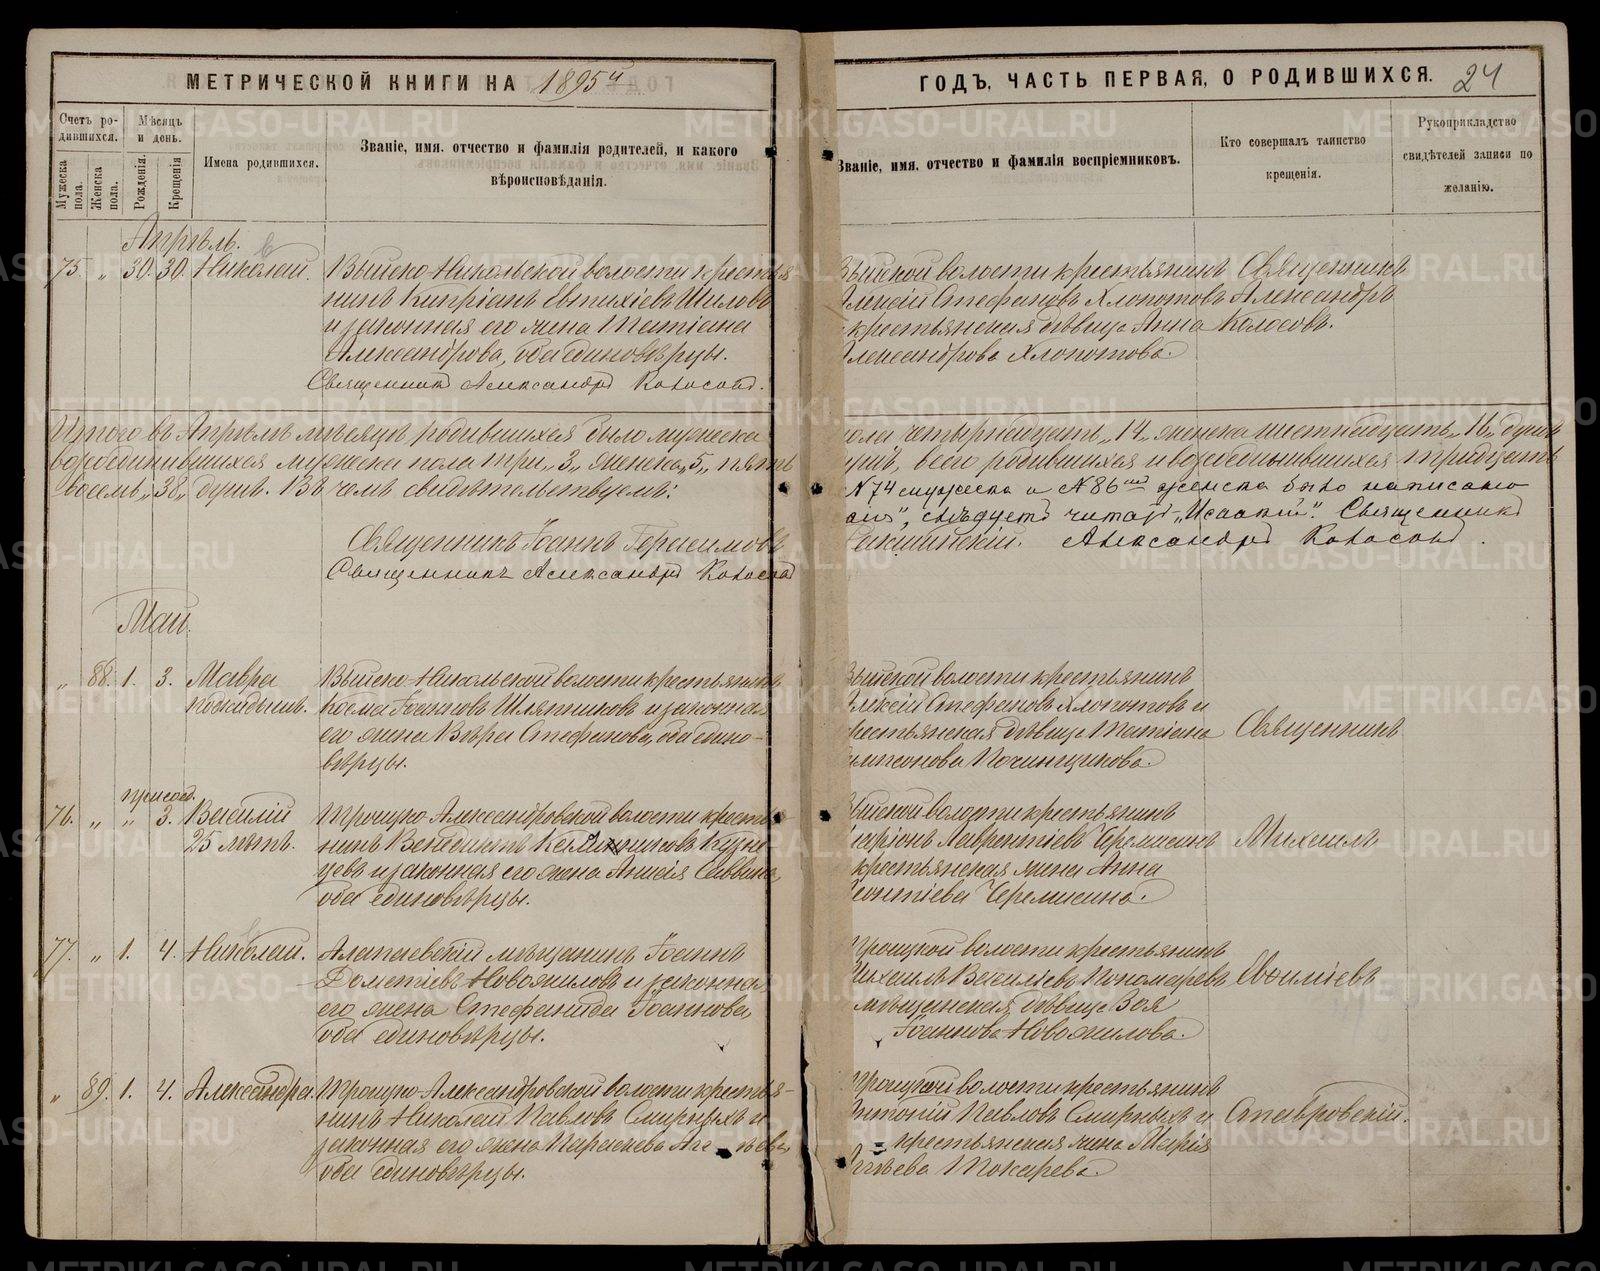 МЕТРИЧЕСКОЙ КНИГИ НА 1895й
ГОДЪ, ЧАСТЬ ПЕРВАЯ, О РОДИВШИХСЯ. 24
Счетъ ро-
дившихся.
Мужеска
пола.
Женска
пола.
Мѣсяцъ
и день.
Рожденія.
Крещенія
Имена родившихся.
Званіе, имя, отчество и фамилія родителей, и какого
вѣроисповѣданія.
Званіе, имя, отчество и фамилія воспріемниковъ.
Кто совершалъ таинство
крещенія.
Рукоприкладство
свидѣтелей записи по
желанію.
Апрѣль.
75. „ 30. 30. Николай.
Выйско-Никольской волости крестья
нинъ Кипріанъ Евтихіевъ Шиловъ
и законная его жена Татіана
Александрова, оба единовѣрцы.
Священникъ Александръ Колосовъ.
Выйской волости крестьянинъ
Стефановъ Хлопотовъ
крестьянская дѣвица Анна
Александрова Хлопотова.
Священникъ
Александръ
Колосовъ.
Итого въ Апрѣлѣ мѣсяцѣ родившихся было мужеска
пола четырнадцать „14„ женска шестнадцать „16„ душъ
возсоединившихся мужеска пола три „3„ женска „5„ пять
всего родившихся и возсоединившихся тридцать
восемь „38„ душъ. Въ чемъ свидѣтельствуемъ:
N 74 мужеска и N 86 женска было написано
слѣдуетъ читать „Исаакій“. Священникъ
Священникъ Іоаннъ Герасимовъ
Александръ Колосовъ.
Священникъ Александръ Колосовъ
Май.
„ 88. 1. 3. Мавра
подкидышъ.
Выйско-Никольской волости крестьянинъ
Косма Іоанновъ Шляпниковъ и законная
его жена Вѣра Стефанова, оба едино-
вѣрцы.
Выйской волости крестьянинъ
Алексій Стефановъ Хлопотовъ и
крестьянская дѣвица Татіана
Сампсонова Починщикова.
Священникъ
присоед.
76. „ „ 3. Василій
25 лѣтъ.
Троицко-Александровской волости крестья
нинъ Венедиктъ Кузне
цовъ и законная его жена Анисія Саввина,
оба единовѣрцы.
Выйской волости крестьянинъ
Лаврентіевъ Черемисинъ
крестьянская жена Анна
Леонтіева Черемисина.
Михаилъ
77. „ 1. 4. Николай.
Алапаевскій мѣщанинъ Іоаннъ
Дометіевъ Новожиловъ и законная
его жена Стефанида Іоаннова,
оба единовѣрцы.
Троицкой волости крестьянинъ
Михаилъ Васильевъ Пономаревъ
мѣщанская дѣвица Зоя
Іоаннова Новожилова.
„ 89. 1. 4. Александра.
Троицко-Александровской волости крестья-
нинъ Николай Павловъ Смирныхъ и
законная его жена Параскева
оба единовѣрцы.
Троицкой волости крестьянинъ
Антоній Павловъ Смирныхъ и
крестьянская жена Марія
Токарева.
Ставровскій.
METRIKI.GASO-URAL.RU